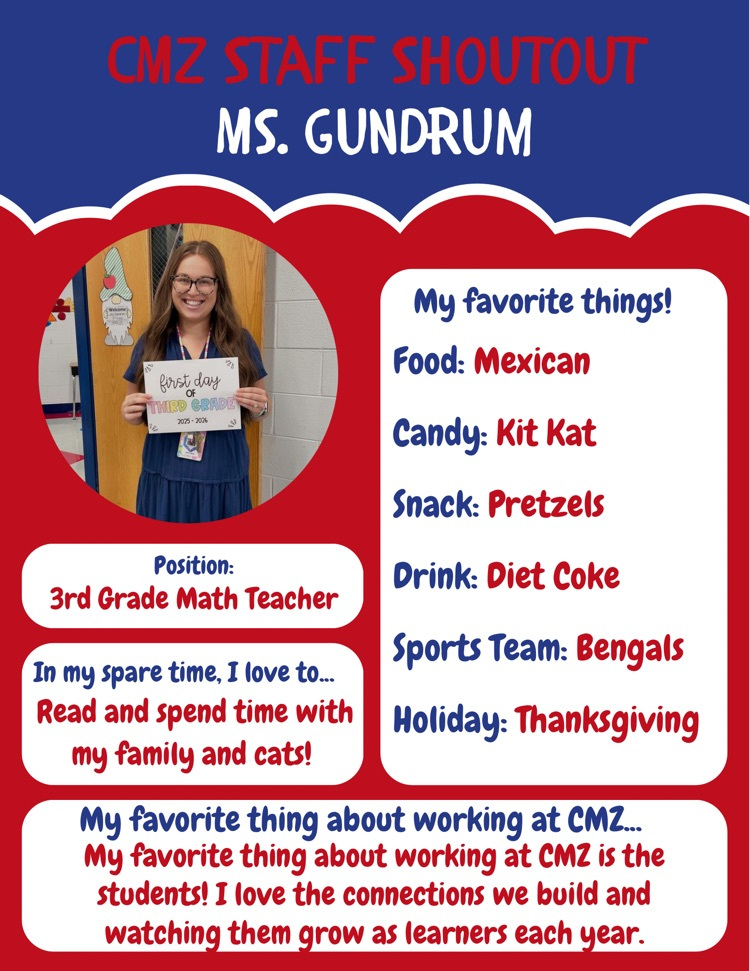 CMZ STAFF SHOUTOUT
MS. GUNDRUM
Welcome
first day
OF
THIRD GRADE
2025 - 2026
My favorite things!
Food: Mexican
Candy: Kit Kat
Snack: Pretzels
Drink: Diet Coke
Sports Team: Bengals
Holiday: Thanksgiving
Position:
3rd Grade Math Teacher
In my spare time, I love to...
Read and spend time with
my family and cats!
My favorite thing about working at CMZ...
My favorite thing about working at CMZ is the
students! I love the connections we build and
watching them grow as learners each year.